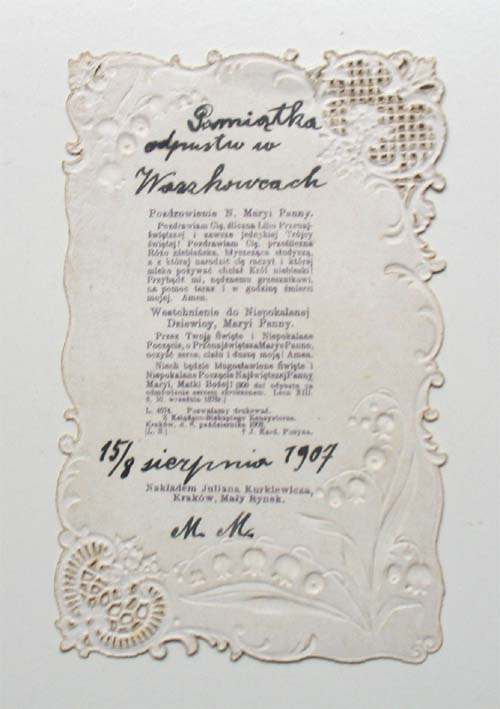 Pamiątka
odpustu w
Waszkowcach
Pozdrowienie N. Maryi Panny.
Pozdrawiam Cię, śliczna Lilio Przenaj-
świętszej i zawsze jednykiej Trójcy
świętej! Pozdrawiam Cię, prześliczna
Różo niebiańska, błyszcząca słodyczą,
a z której narodzić się raczył i której
mleko pożywać chciał Król niebieski!
Przybądź mi, nędznemu grzesznikowi,
na pomoc teraz i w godzinę śmierci
mojej. Amen.
Westchnienie do Niepokalanej
Dziewicy, Maryi Panny.
Przez Twoje Święte i Niepokalane
Poczęcie, o Przenajświętsza Maryo Panno,
oczyść serce, ciało i duszę moją! Amen.
Niech będzie błogosławione Święte i
Niepokalane Poczęcie Najświętszej Panny
Maryi, Matki Bożej! (300 dni odpustu za
odmówienie sercem skruszonem. Leon XIII.
d. 10. września 1878r.)
L. 4674. Pozwalamy drukować.
Z Książęco-Biskupiego Konsystorza.
Kraków, d. 6. października 1902.
(L. S.) † J. Kard. Puzyna.
15/8 sierpnia 1907
Nakładem Juliana Kurkiewicza,
Kraków, Mały Rynek.
M. M.